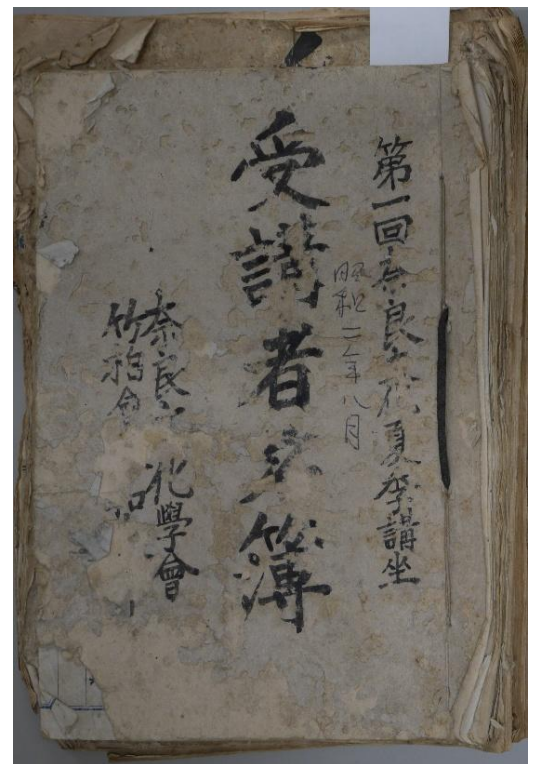 第一回奈良女夏季講坐
昭和二年八月
受講者名簿
奈良女 化學會
竹柏會